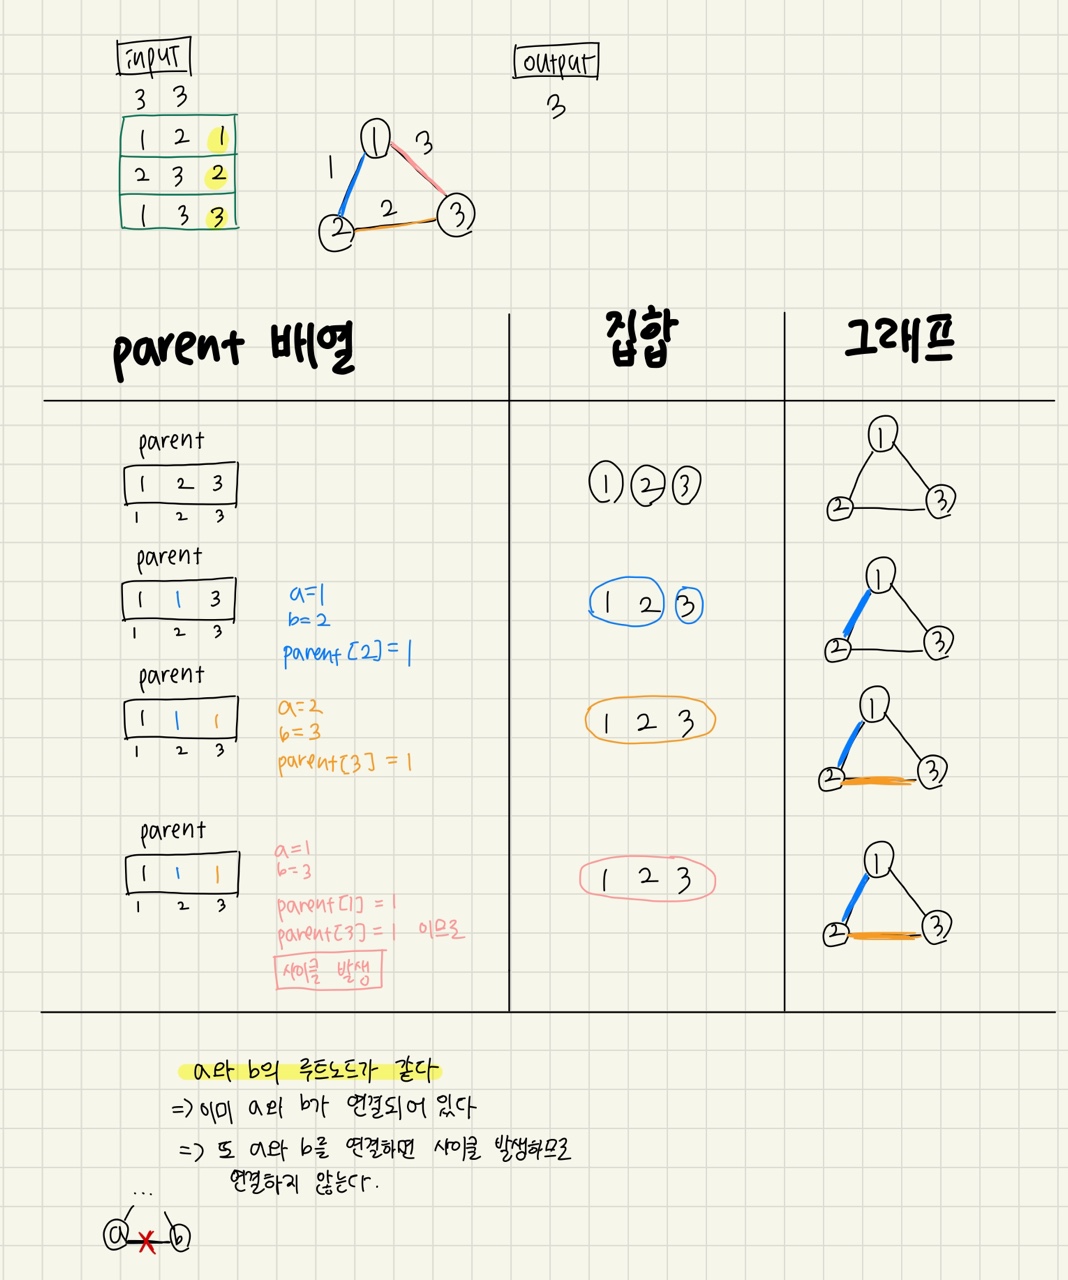 input
output
3 3
3
1 2 1
2 3 2
1 3 3
1
1 3
2
2 3
parent 배열
집합
그래프
parent
1 2 3
1 2 3
1 2 3
1
2 3
parent
1 1 3
1 2 3
a=1
b=2
parent[2]=1
1 2 3
1
2 3
parent
1 1 1
1 2 3
a=2
b=3
parent[3] = 1
1 2 3
1
2 3
parent
1 1 1
1 2 3
a=1
b=3
parent[1] = 1
parent[3] = 1 이므로
사이클 발생
1 2 3
1
2 3
a와 b의 루트노드가 같다
=> 이미 a와 b가 연결되어 있다
=> 또 a와 b를 연결하면 사이클 발생하므로
연결하지 않는다.
...
a X b